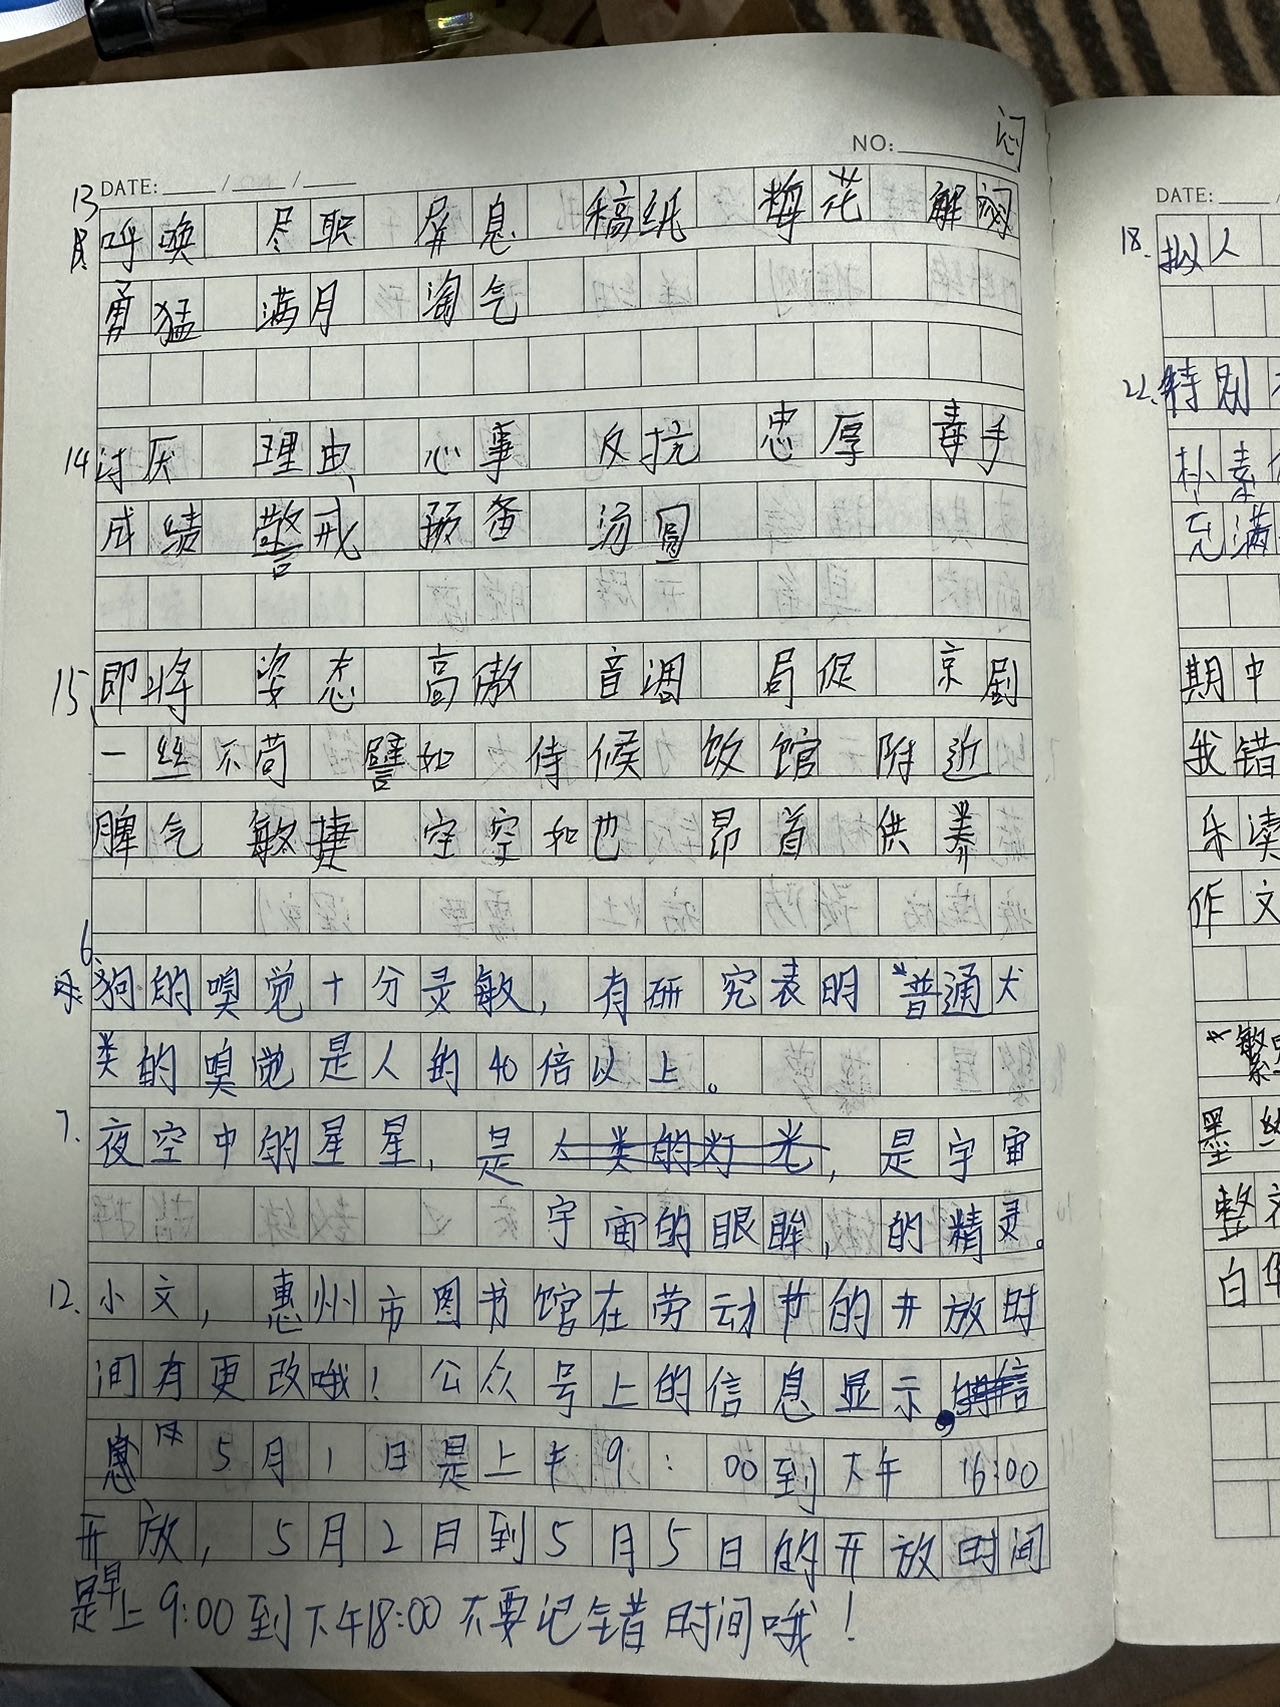 NO:
闷
DATE: / /
13
呼唤 尽职 屏息 稿纸 梅花 解闷
勇猛 满月 淘气
14 讨厌 理由 心事 反抗 忠厚 毒手
成绩 警戒 预备 汤圆
15 即将 姿态 高傲 音调 局促 京剧
一丝不苟 譬如 侍候 饭馆 附近
脾气 敏捷 空空如也 昂首 供养
6
狗的嗅觉十分灵敏，有研究表明"普通犬
类的嗅觉是人的40倍以上。
7. 夜空中的星星，是人类的灯光，是宇宙
宇宙的眼眸，的精灵。
12. 小文，惠州市图书馆在劳动节的开放时
间有更改哦！公众号上的信息显示，
5月1日是上午9:00到下午16:00
开放，5月2日到5月5日的开放时间
是早上9:00到下午18:00不要记错时间哦！
DATE:
18. 拟人
22. 特别
朴素
充满
期中
我错
乐读
作文
"繁
墨
整
白